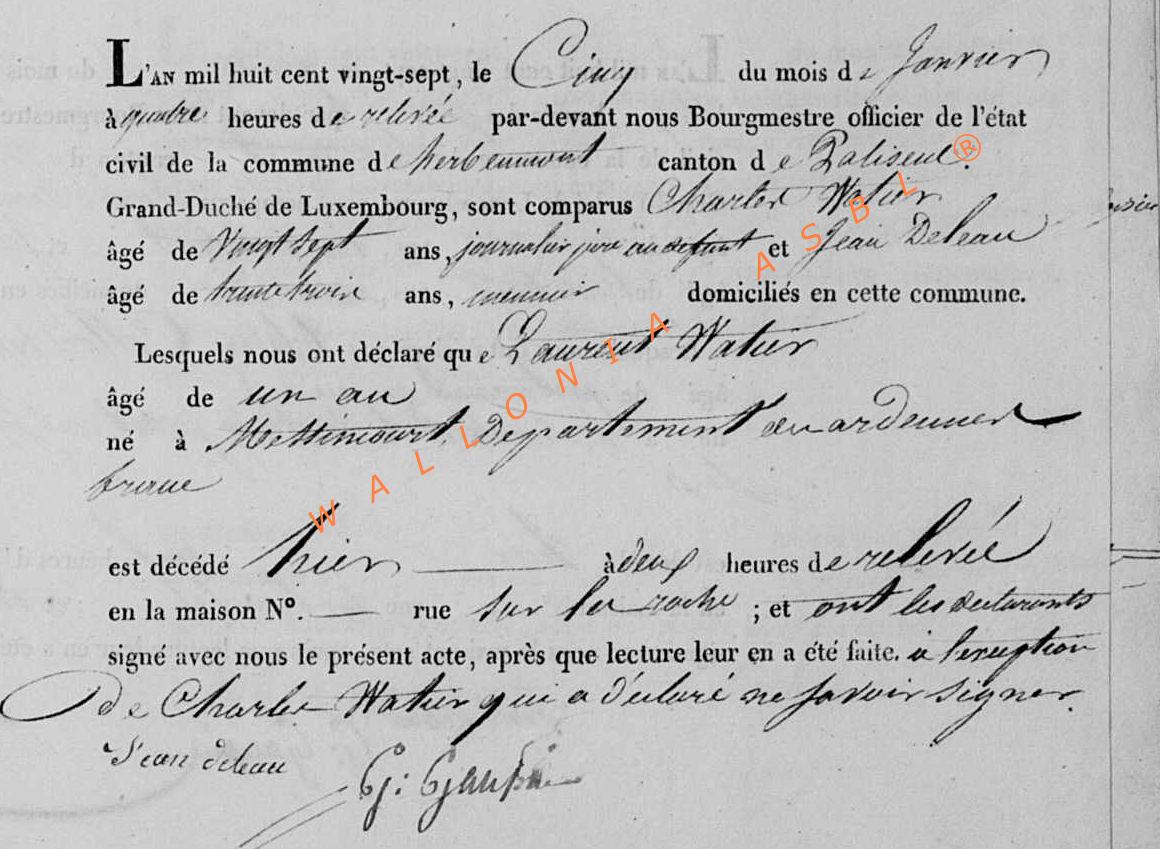 L'AN mil huit cent vingt-sept, le Cinq du mois de Janvier
à quatre heures de relevée par-devant nous Bourgmestre officier de l'état
civil de la commune de herbeumont canton de Paliseul.
Grand-Duché de Luxembourg, sont comparus Charles Watier
âgé de Vingt sept ans, journalier père au defunt et Jean Deleau
âgé de trente trois ans, meunier domiciliés en cette commune.
Lesquels nous ont déclaré que Laurent Watier
âgé de un an
né à Departement des ardennes
france
est décédé hier à deux heures de relevée
en la maison N°. rue sur la roche ; et ont les declarants
signé avec nous le présent acte, après que lecture leur en a été faite. à l'exception
de Charles Watier qui a déclaré ne savoir signer.
Jean deleau
WALLONIA ASBL ®